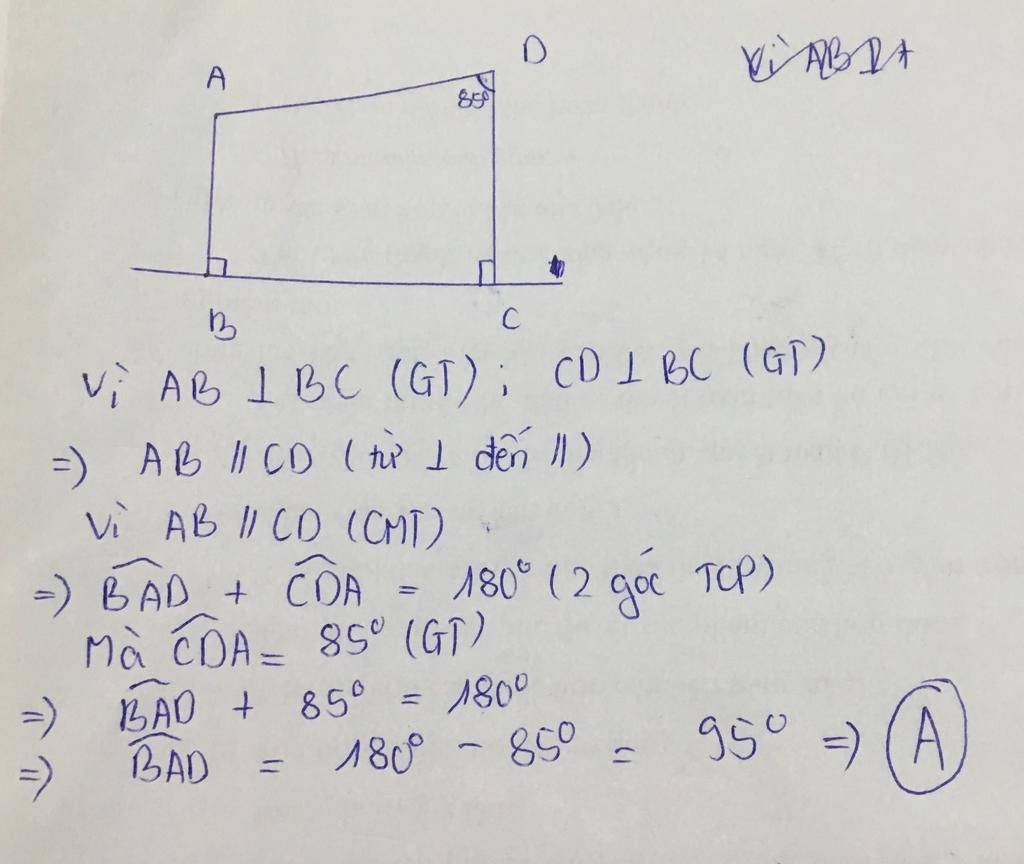 Vì AB ⊥ A
A
D
85°
B
C
Vì AB ⊥ BC (GT) ; CD ⊥ BC (GT)
=) AB // CD (từ ⊥ đến //)
Vì AB // CD (CMT)
=) B̂AD + ĈDA = 180° (2 góc TCP)
Mà ĈDA = 85° (GT)
=) B̂AD + 85° = 180°
=) B̂AD = 180° - 85° = 95° =) A